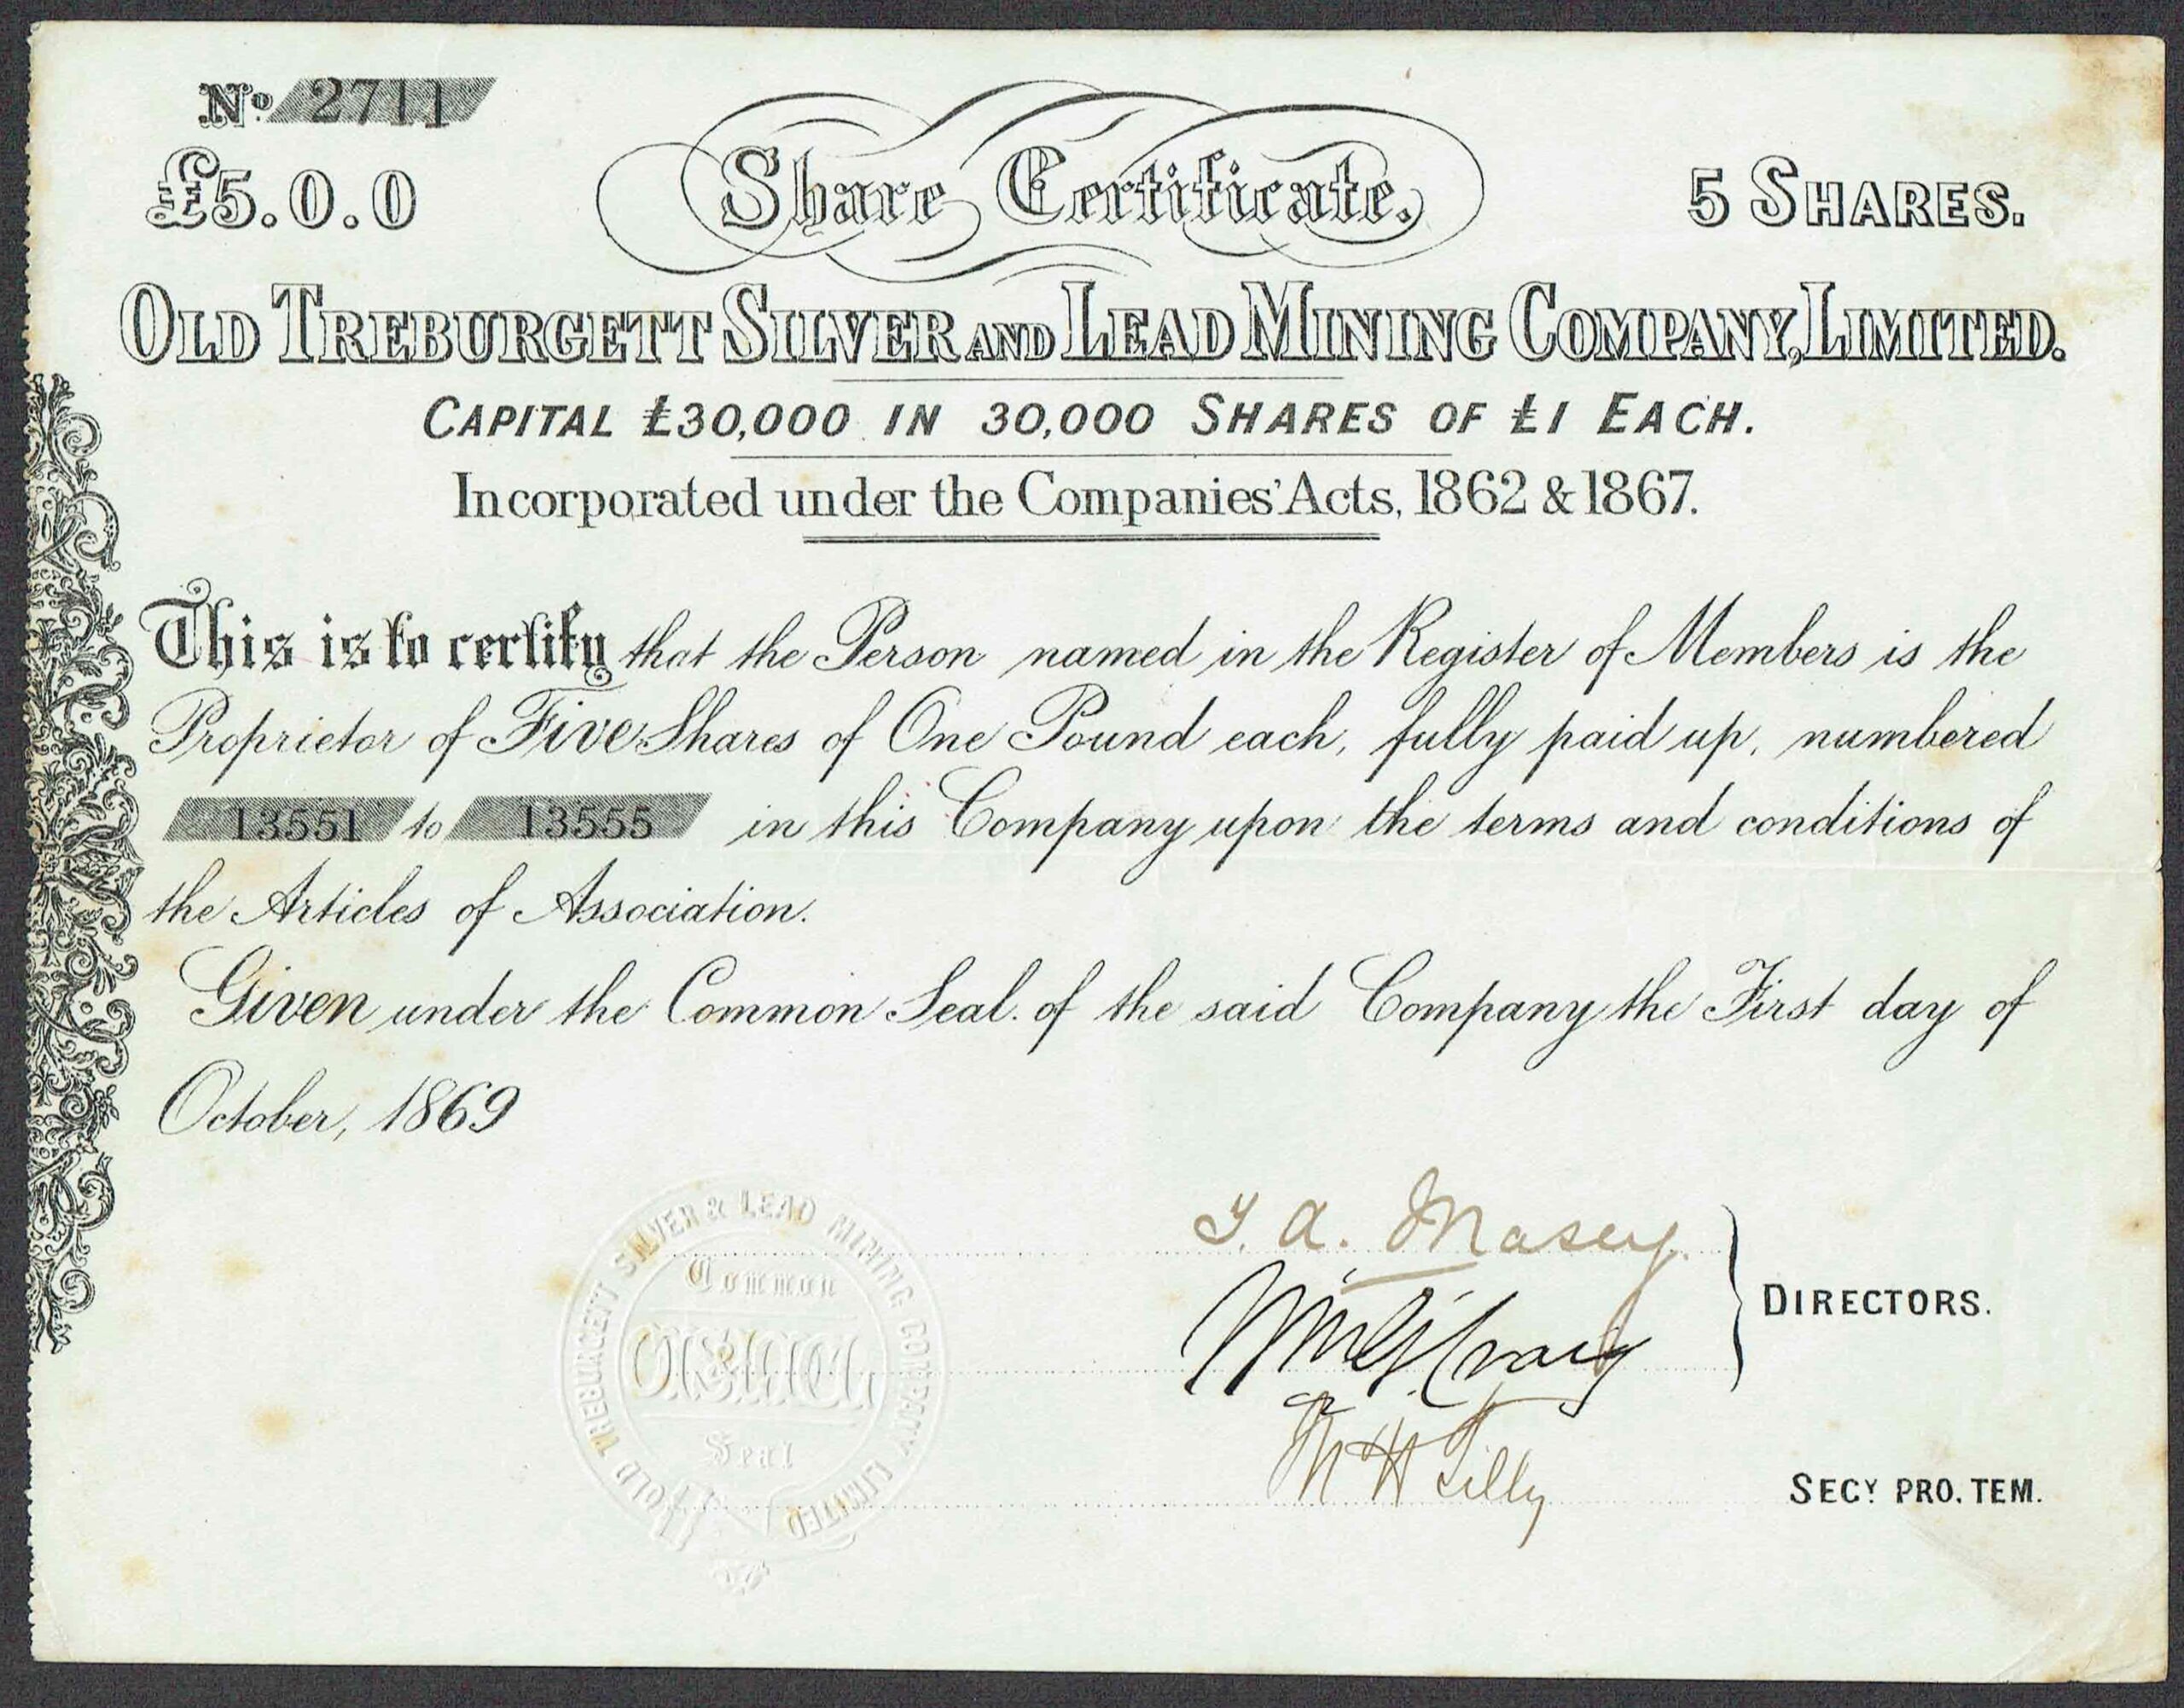 No. 2711
£5.0.0
Share Certificate.
5 SHARES.
OLD TREBURGETT SILVER AND LEAD MINING COMPANY, LIMITED.
CAPITAL £30,000 IN 30,000 SHARES OF £1 EACH.
Incorporated under the Companies' Acts, 1862 & 1867.
This is to certify that the Person named in the Register of Members is the
Proprietor of Five Shares of One Pound each, fully paid up, numbered
13551 to 13555 in this Company upon the terms and conditions of
the Articles of Association.
Given under the Common Seal of the said Company the First day of
October, 1869
OLD TREBURGENT SILVER & LEAD MINING COMPANY LIMITED
Common
Seal
A. Masey
Craig
DIRECTORS.
H Tilly
SECY PRO. TEM.